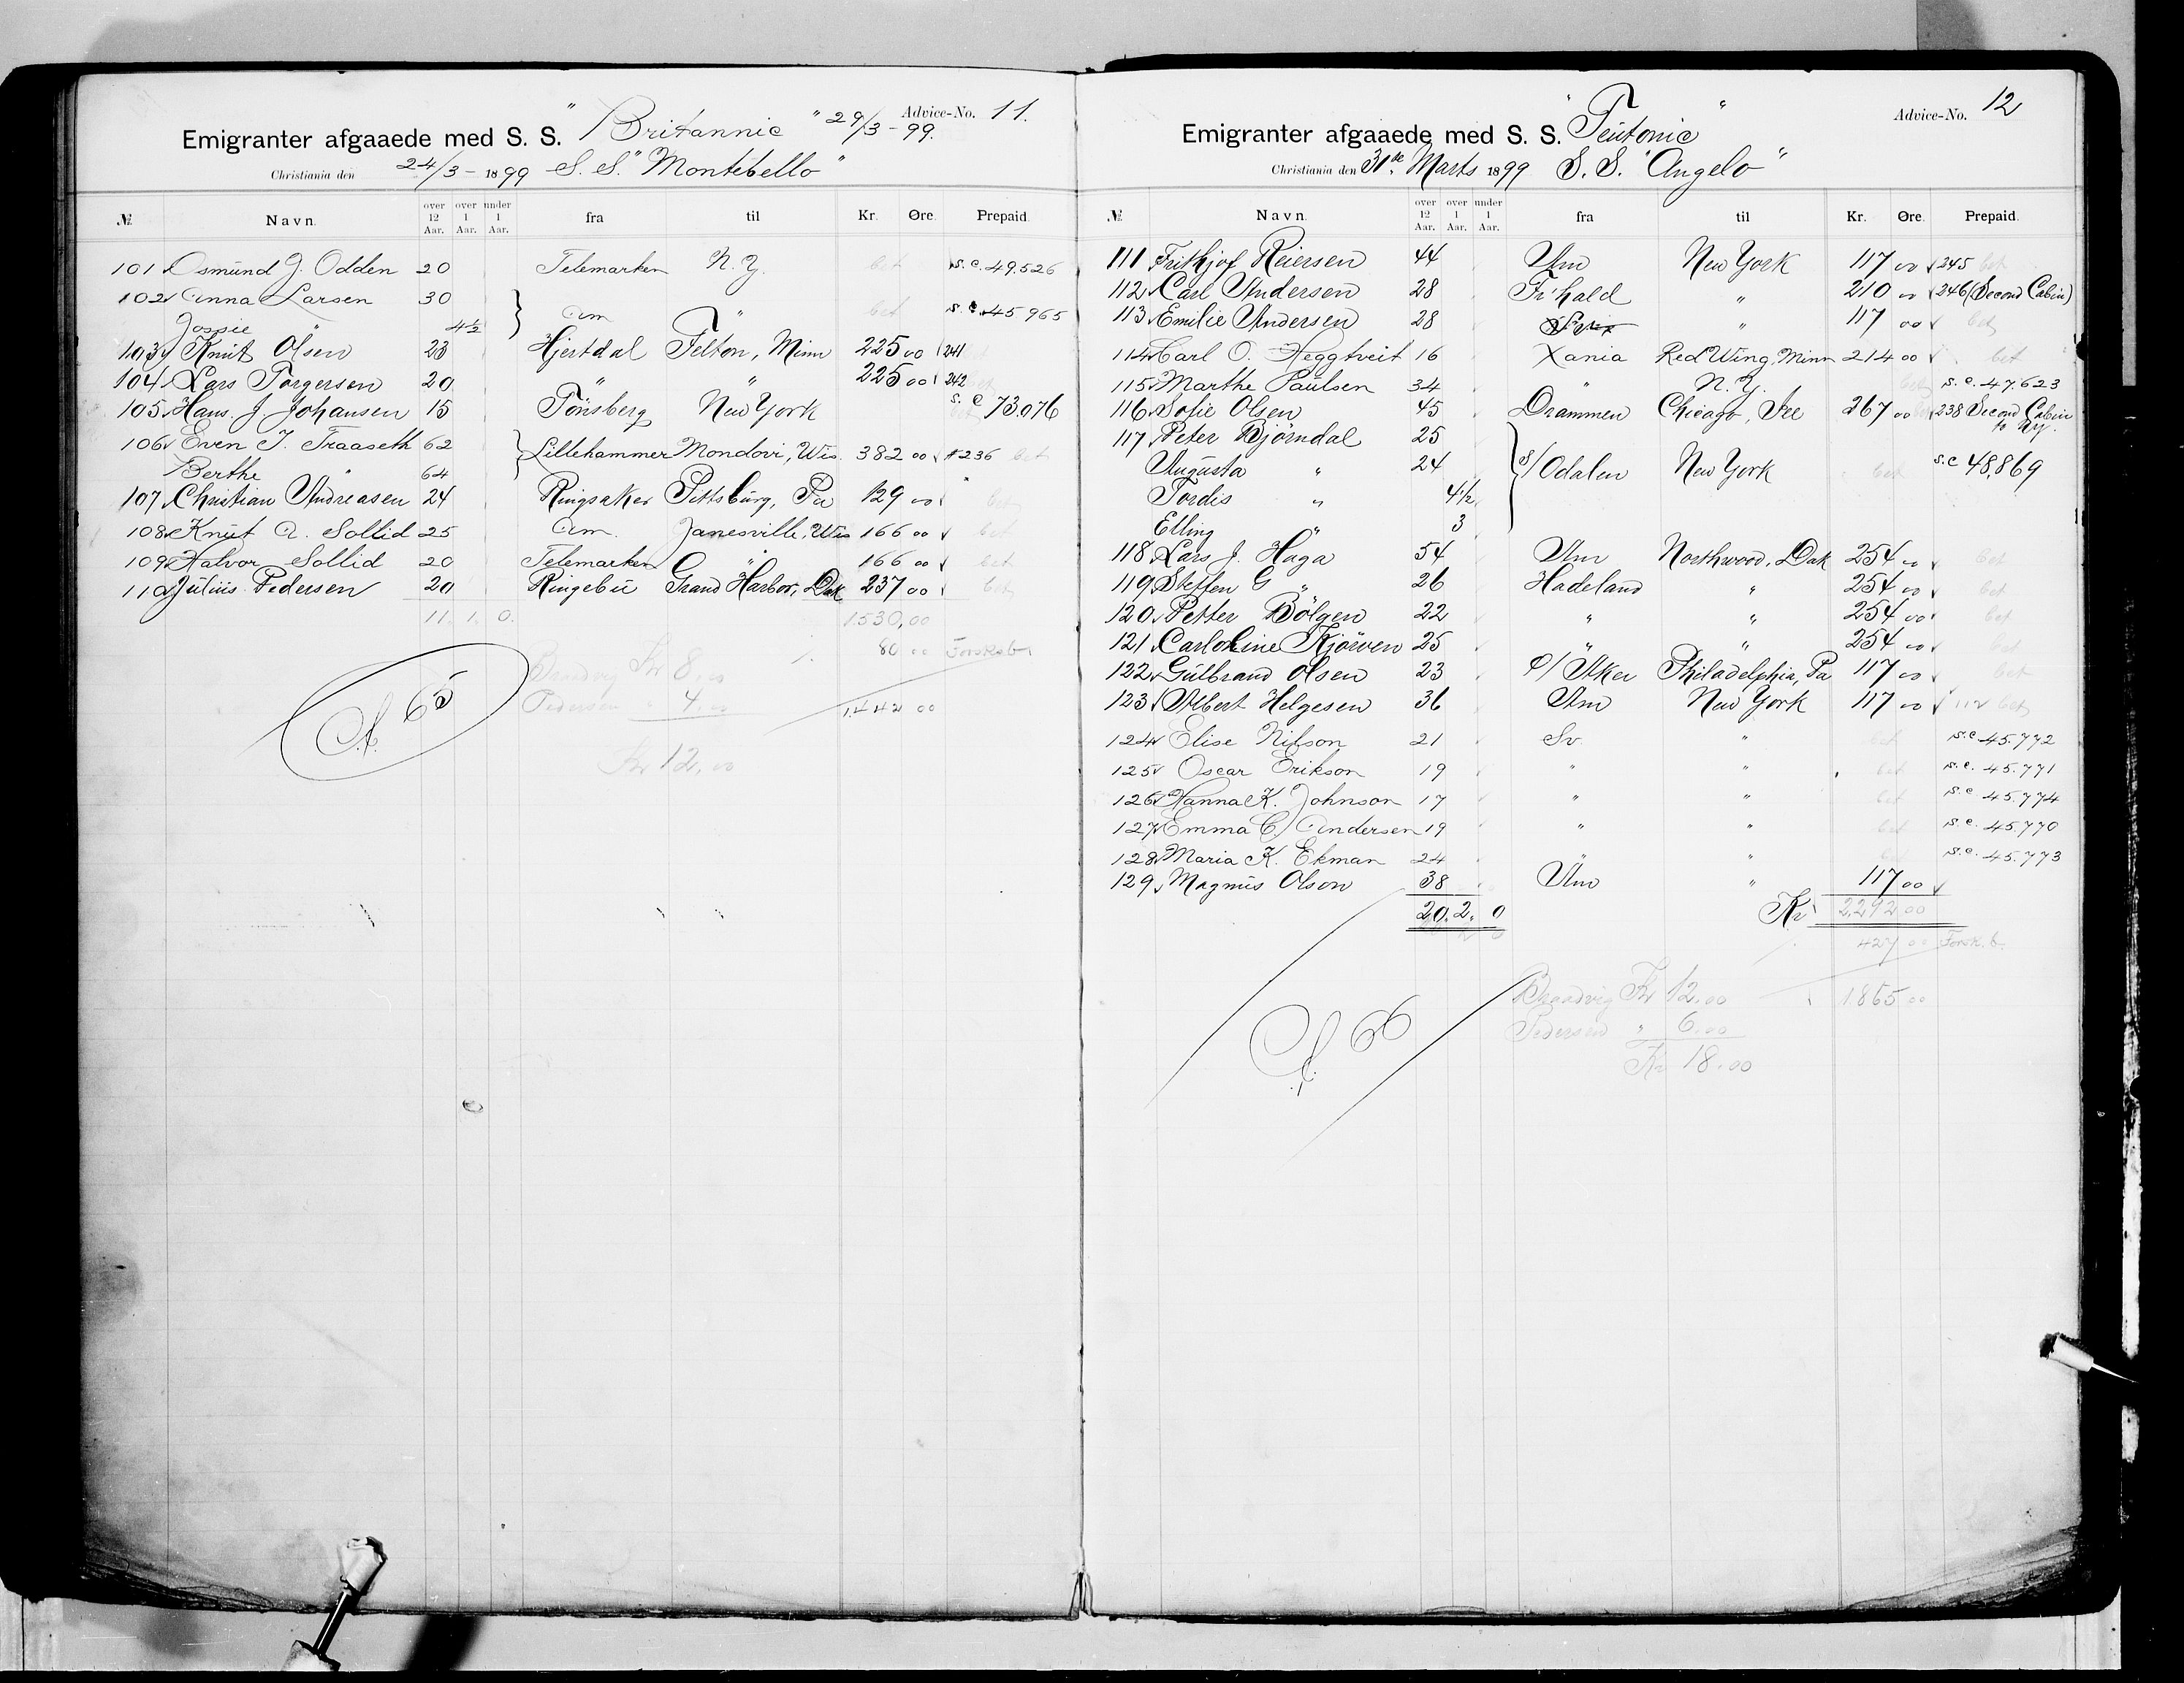 Emigranter afgaaede med S. S. "Britannic" 29/3 - 99. Advice-No. 11.
Christiania den 24/3 - 1899 S. S. "Montebello"
№ Navn. over 12 Aar. over 1 Aar. under 1 Aar. fra til Kr. Øre. Prepaid.
101 Osmund J. Odden 20 Telemarken N.Y. bet s.c. 49.526
102 Anna Larsen 30 Am " bet s.c. 45965
Jossie " 4½
103 Knut Olsen 23 Hjertdal Felton, Minn 225 00 241
104 Lars Torgersen 20 " " 225 00 242 bet
105 Hans J. Johansen 15 Tönsberg New York bet s.c 73.076
106 Even J. Traaseth 62 Lillehammer Mondovi, Wis. 382 00 #236 bet
Berthe " 64
107 Christian Andreasen 24 Ringsaker Pittsburg, Pa 129 00 bet
108 Knut A. Sollid 25 Am. Janesville, Wis 166 00 bet
109 Halvor Sollid 20 Telemarken " 166 00 bet
110 Julius Pedersen 20 Ringebu Grand Harbor, Dak 237 00 bet
11. 1. 0. 1.530,00
80 00 Forskb.
Braadvig Kr 8,00
Pedersen " 4,00 1,442 00
Kr 12,00
A 65
Emigranter afgaaede med S. S. "Teutonic" Advice-No. 12
Christiania den 31te Marts 1899 S. S. "Angelo"
№ Navn. over 12 Aar. over 1 Aar. under 1 Aar. fra til Kr. Øre. Prepaid.
111 Frithjof Reiersen 44 Am New York 117 00 245 bet
112 Carl Andersen 28 Fr'hald " 210 00 246 (Second Cabin)
113 Emilie Andersen 28 " 117 00 bet
114 Carl O. Heggtveit 16 Xania Red Wing, Minn 214 00 bet
115 Marthe Paulsen 34 " N.Y. bet s.c. 47.623
116 Sofie Olsen 45 Drammen Chicago, Ill 267 00 238 Second Cabin
to NY.
117 Peter Björndal 25
Augusta " 24 S/Odalen New York bet s.c 48,869
Tordis " 4½
Elling " 3
118 Lars J. Haga 54 Am Northwood, Dak 254 00 bet
119 Steffen G " 26 Hadeland " 254 00 bet
120 Petter Bölgen 22 " " 254 00 bet
121 Carloline Kjörven 25 " " 254 00 bet
122 Gulbrand Olsen 23 Ø/Aker Philadelphia, Pa 117 00 bet
123 Albert Helgesen 36 Am New York 117 00 112 bet
124 Elise Nilsson 21 Sv. " bet s.c 45.772
125 Oscar Erikson 19 " " bet s.c. 45.771
126 Hanna K. Johnson 17 " " bet s.c 45.774
127 Emma C. Andersen 19 " " bet s.c. 45.770
128 Maria K. Ekman 24 " " bet s.c. 45.773
129 Magnus Olson 38 Am " 117 00
20. 2. 0 Kr 2,292 00
427 00 Forsk.b.
Braadvig Kr 12,00 1865 00
Pedersen " 6,00
Kr 18,00
A 66